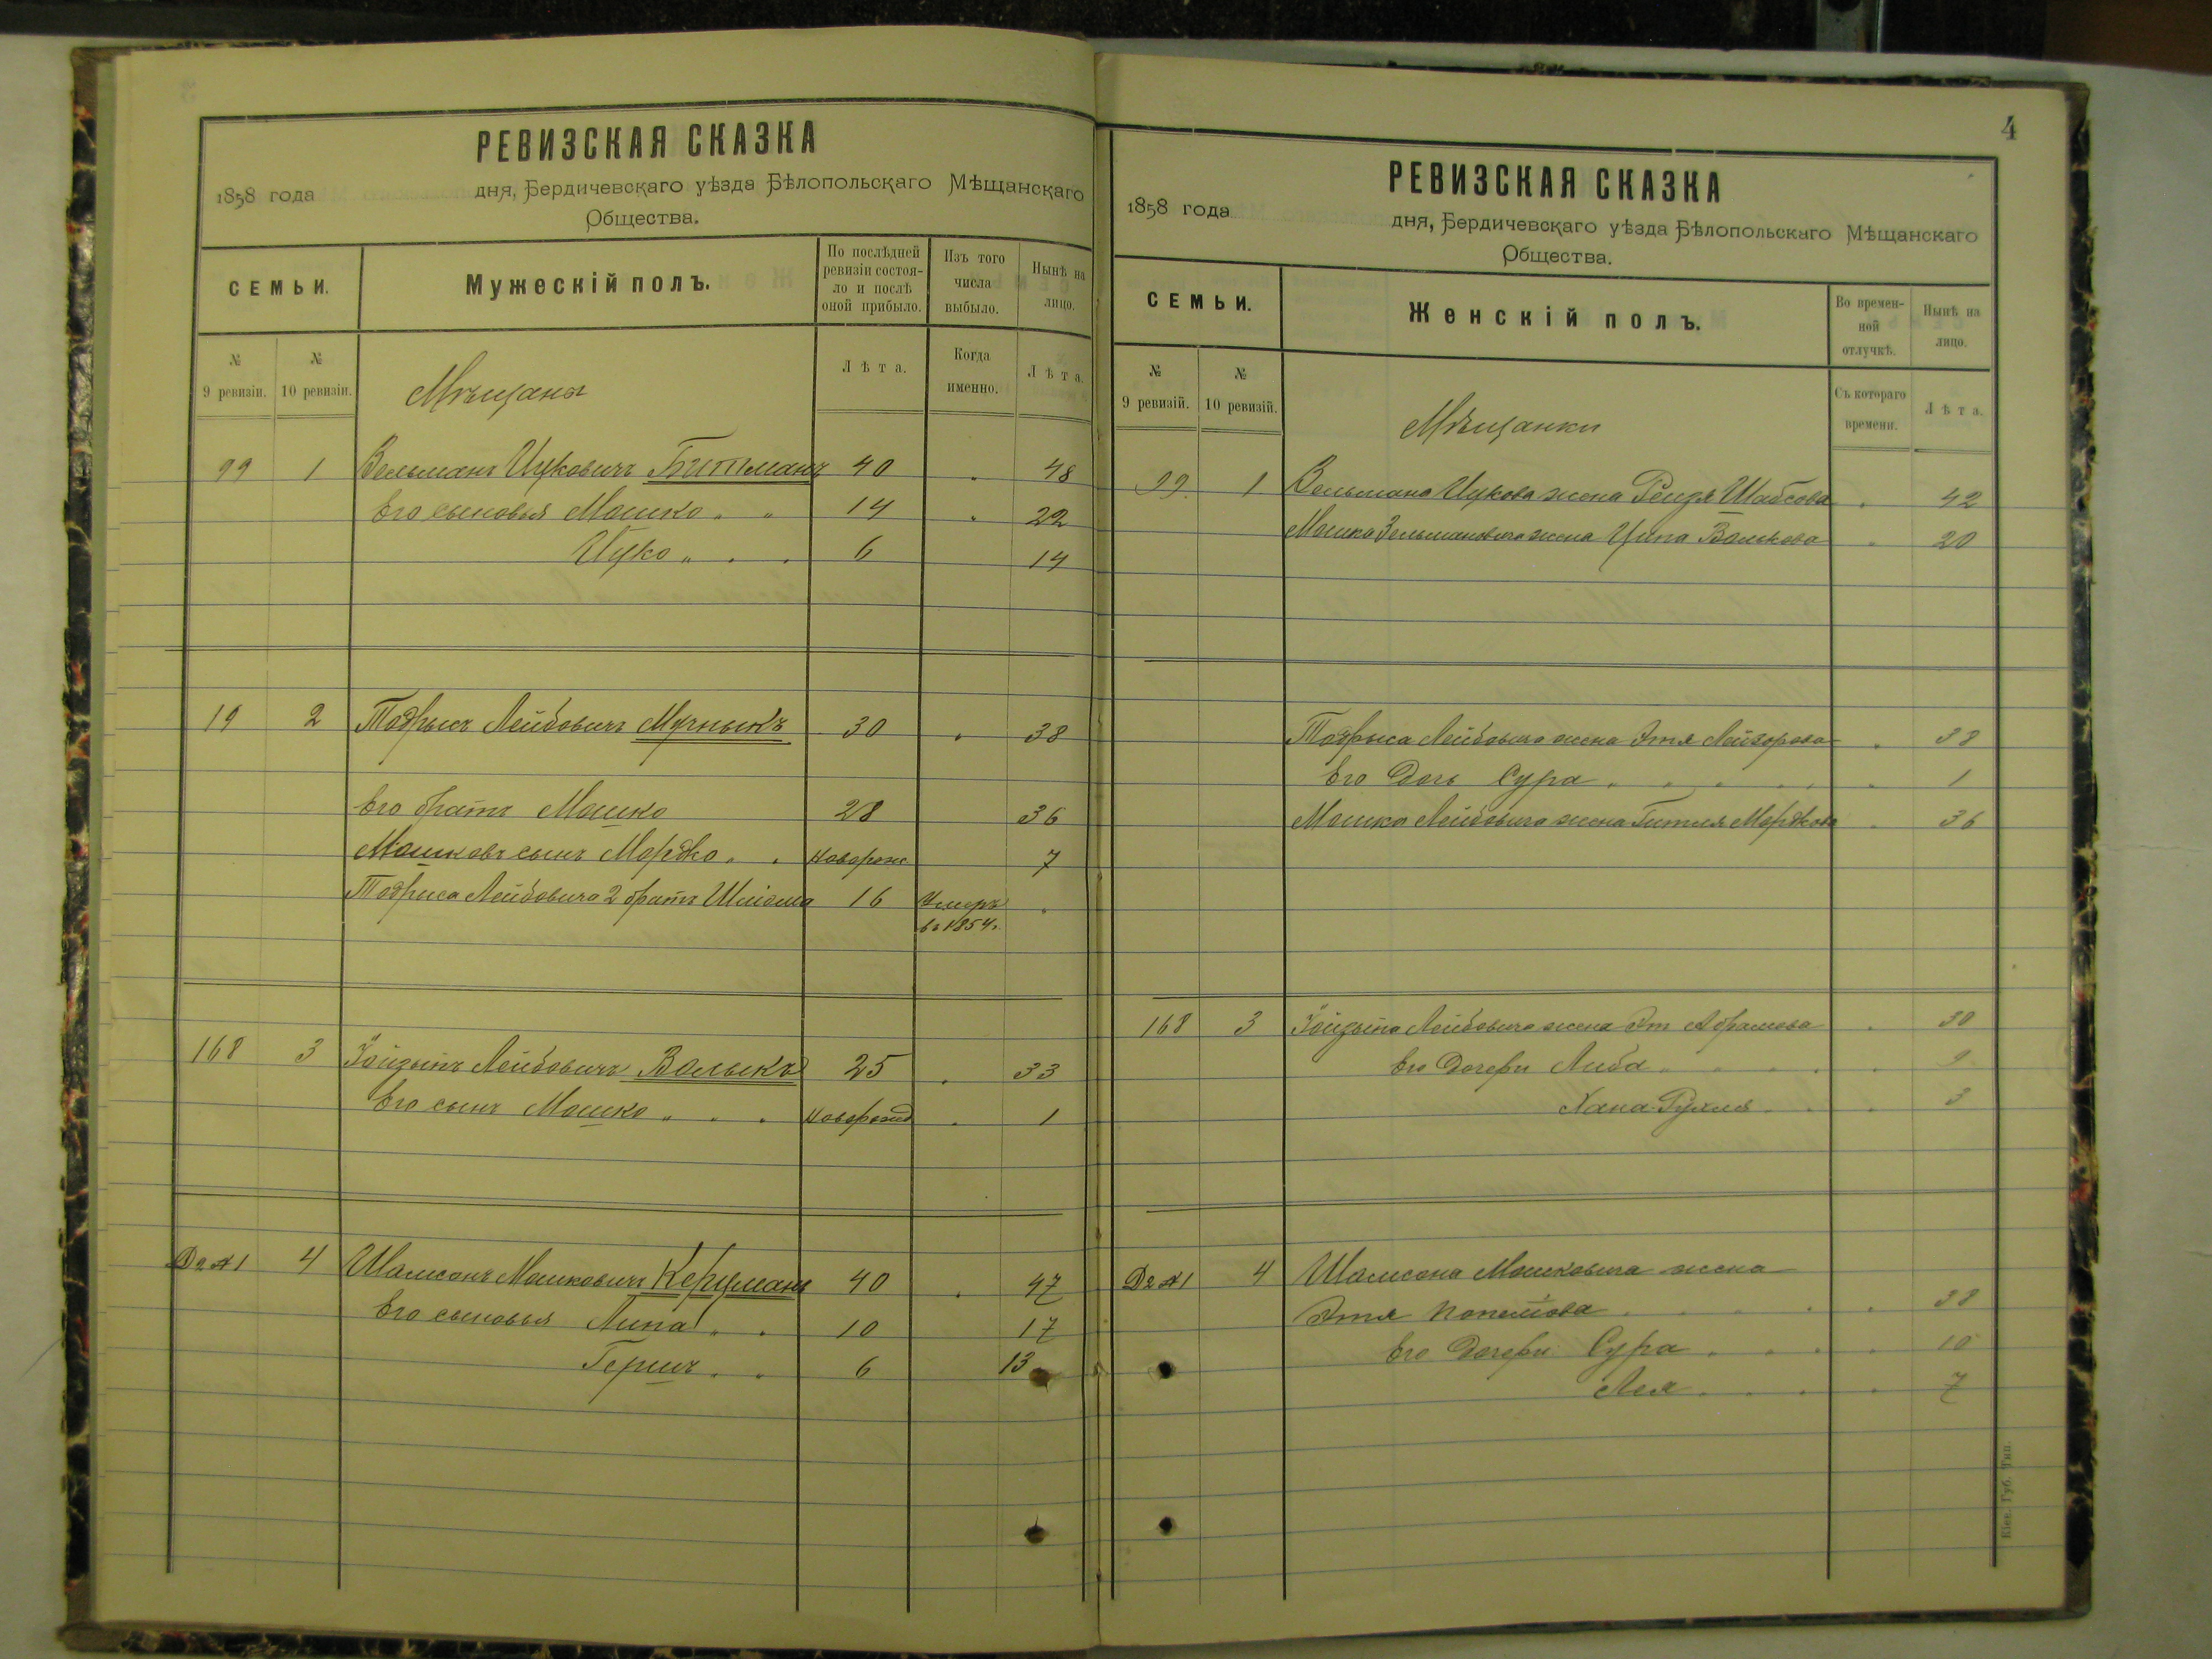 РЕВИЗСКАЯ СКАЗКА
1858 года дня, Бердичевскаго уѣзда Бѣлопольскаго Мѣщанскаго
Общества.
СЕМЬИ. Мужескій полъ. По послѣдней ревизіи состояло и послѣ оной прибыло. Изъ того числа выбыло. Нынѣ на лицо.
№ 9 ревизіи. № 10 ревизіи. Лѣта. Когда именно. Лѣта.
Мѣщаны
99 1 Зельманъ Ицковичъ Битманъ 40 48
Его сыновья Мошко 14 22
Ицко 6 14
19 2 Тодрысъ Лейбовичъ Мучныкъ 30 38
Его братъ Мошко 28 36
Мошковъ сынъ Мордко 7
Тодриса Лейбовича 2 братъ Шліома 16 Умеръ
въ 1854.
168 3 Зойдынъ Лейбовичъ Волыкъ 25 33
Его сынъ Мошко 1
Д2 №1 4 Шамсонъ Мошковичъ Керцманъ 40 47
Его сыновья Липа 10 17
Гершъ 6 13
4
РЕВИЗСКАЯ СКАЗКА
1858 года дня, Бердичевскаго уѣзда Бѣлопольскаго Мѣщанскаго
Общества.
СЕМЬИ. Женскій полъ. Во временной отлучкѣ. Нынѣ на лицо.
№ 9 ревизій. № 10 ревизій. Съ котораго времени. Лѣта.
Мѣщанки
99 1 Зельмана Ицкова жена Рейзя Шабсова 42
Мошка Зельмановича жена Ципа Волькова 20
Тодрыса Лейбовича жена Этя Лейзорова 38
Его дочь Сура 1
Мошка Лейбовича жена Гитля Мордкова 36
168 3 Зойдына Лейбовича жена Эт Абрамова 30
Его дочери Либа 9
Хана-Рухля 3
Д2 №1 4 Шамсона Мошковича жена
Этя 38
Его дочери Сура 10
Лея 7
Кіев. Губ. Тип.